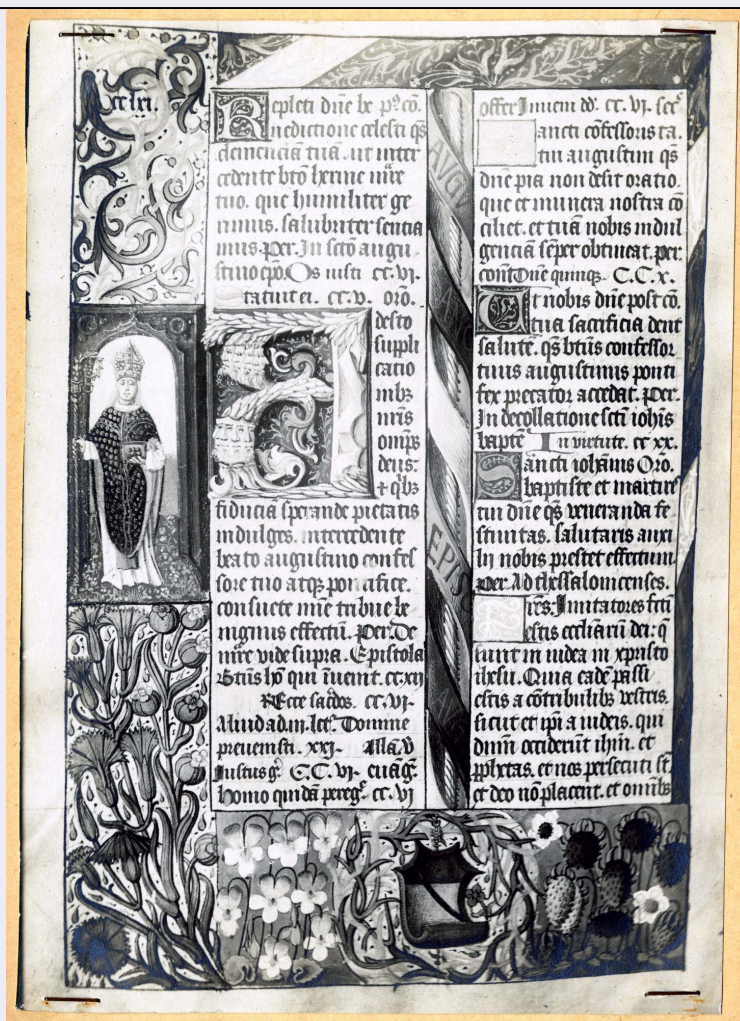 cclxi.
Repleti dñe be pꝰ cõ.
nedictione celesti qs̃
clemenciã tuã . ut inter
cedente btõ herme mr̃e
tuo . que humiliter ge
rimus . salubriter sentia
mus . Per . In sctõ augu
stino epõ . Os iusti cc . vi .
tatut ei . cc . v . orõ .
A desto
suppli
catio
nibꝫ
nr̃is
omp̃s
deus :
⁊ qͥbꝫ
fiduciã sperande pietatis
indulges . intercedente
beato augustino confes
sore tuo atqꝫ pontifice .
consuete mie tribue be
nignus effectũ . Per . De
mr̃e vide supra . Epistola
Btũs hõ qui inuenit . cc . xii
RẼcce sacdos . cc . vi .
Aliud ad . iii . lcc̃ . Domine
preuenisti . xxi . Allã . v̄
Iustus g̃ . C . C . vi . euãg̃ .
Homo quidã pereg̃ . cc . vi
AVGV
EPISC
offer Inueni dd̃ . cc . vi . secͬ
ancti cõfessoris tu .
tui augustini qs̃
dñe pia non desit oratio .
que et munera nostra cõ
ciliet . et tuã nobis indul
genciã sẽper obtineat . per .
com̃ Dñe quinqꝫ . C . C . x .
Ut nobis dñe post cõ .
tua sacrificia dent
salutẽ . qs̃ btũs confessor
tuus augustinus ponti
fex precator accedat . Per .
In decollatione scti iohis
baptẽ In virtute . cc xx .
Sancti iohãnis Orõ .
baptiste et martire
tui dñe qs̃ veneranda fe
stiuitas . salutaris auxi
lij nobis prestet effectum .
Per . Ad thessalonicenses .
Fr̃es : Imitatores fcti
estis ecclãrũ dei : q̃
sunt in iudea in xpristo
ihesu . Quia eadẽ passi
estis a cõtribulibꝫ vestris .
sicut et ip̃i a iudeis . qui
dnm̃ occiderũt ihm̃ . et
ꝓphetas . et nos persecuti st̃ .
et deo nõ placent . et omibꝫ